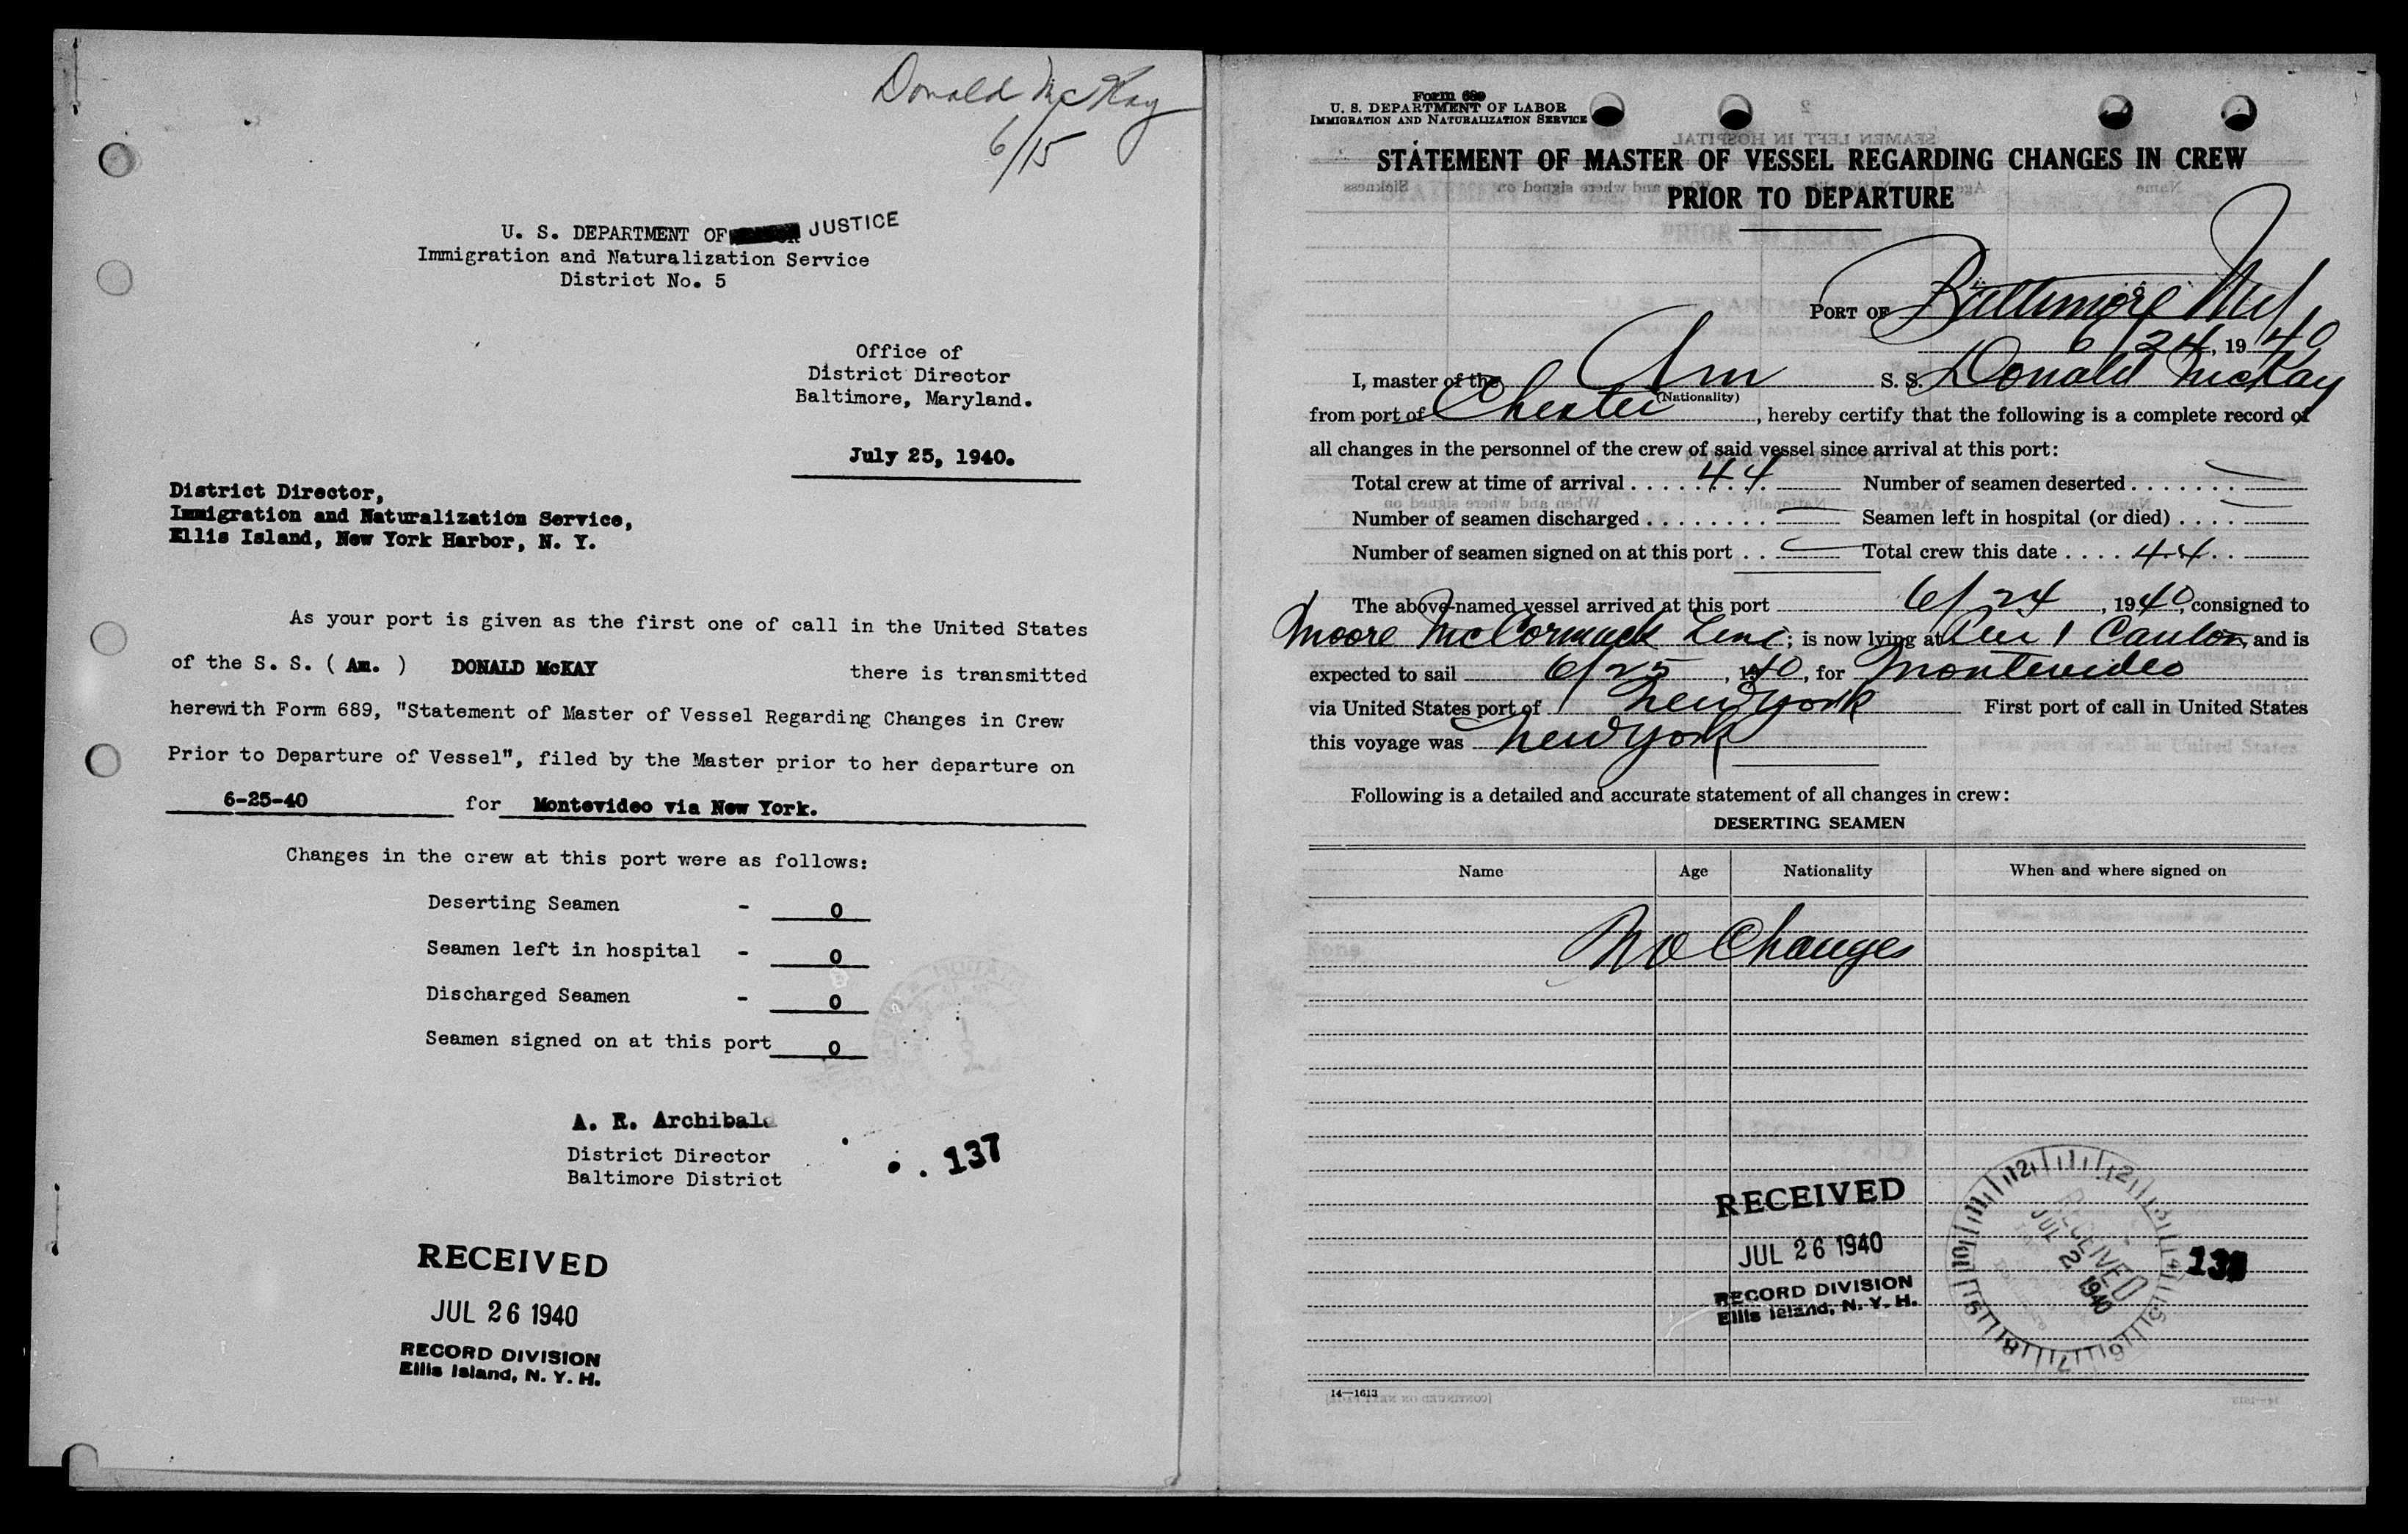 Donald McKay
6/15
U. S. DEPARTMENT OF JUSTICE
Immigration and Naturalization Service
District No. 5
Office of
District Director
Baltimore, Maryland.
July 25, 1940.
District Director,
Immigration and Naturalization Service,
Ellis Island, New York Harbor, N. Y.
As your port is given as the first one of call in the United States
of the S. S. ( Am. ) DONALD McKAY there is transmitted
herewith Form 689, "Statement of Master of Vessel Regarding Changes in Crew
Prior to Departure of Vessel", filed by the Master prior to her departure on
6-25-40 for Montevideo via New York.
Changes in the crew at this port were as follows:
Deserting Seamen - 0
Seamen left in hospital - 0
Discharged Seamen - 0
Seamen signed on at this port 0
A. R. Archibald
District Director
Baltimore District
137
RECEIVED
JUL 26 1940
RECORD DIVISION
Ellis Island, N. Y. H.
Form 689
U. S. DEPARTMENT OF LABOR
IMMIGRATION AND NATURALIZATION SERVICE
STATEMENT OF MASTER OF VESSEL REGARDING CHANGES IN CREW
PRIOR TO DEPARTURE
PORT OF Baltimore Md
6/24, 1940
I, master of the Am S. S. Donald McKay
(Nationality)
from port of Chester, hereby certify that the following is a complete record of
all changes in the personnel of the crew of said vessel since arrival at this port:
Total crew at time of arrival . . . . . . 44 Number of seamen deserted . . . . . . . —
Number of seamen discharged . . . . . . . . — Seamen left in hospital (or died) . . . . —
Number of seamen signed on at this port . . — Total crew this date . . . . 44 . .
The above-named vessel arrived at this port 6/24, 1940, consigned to
Moore McCormack Line; is now lying at Pier 1 Canton, and is
expected to sail 6/25, 1940, for Montevideo
via United States port of New York First port of call in United States
this voyage was New York
Following is a detailed and accurate statement of all changes in crew:
DESERTING SEAMEN
Name Age Nationality When and where signed on
No Changes
RECEIVED
JUL 26 1940
RECORD DIVISION
Ellis Island, N. Y. H.
RECEIVED
JUL 2 1940
14—1613